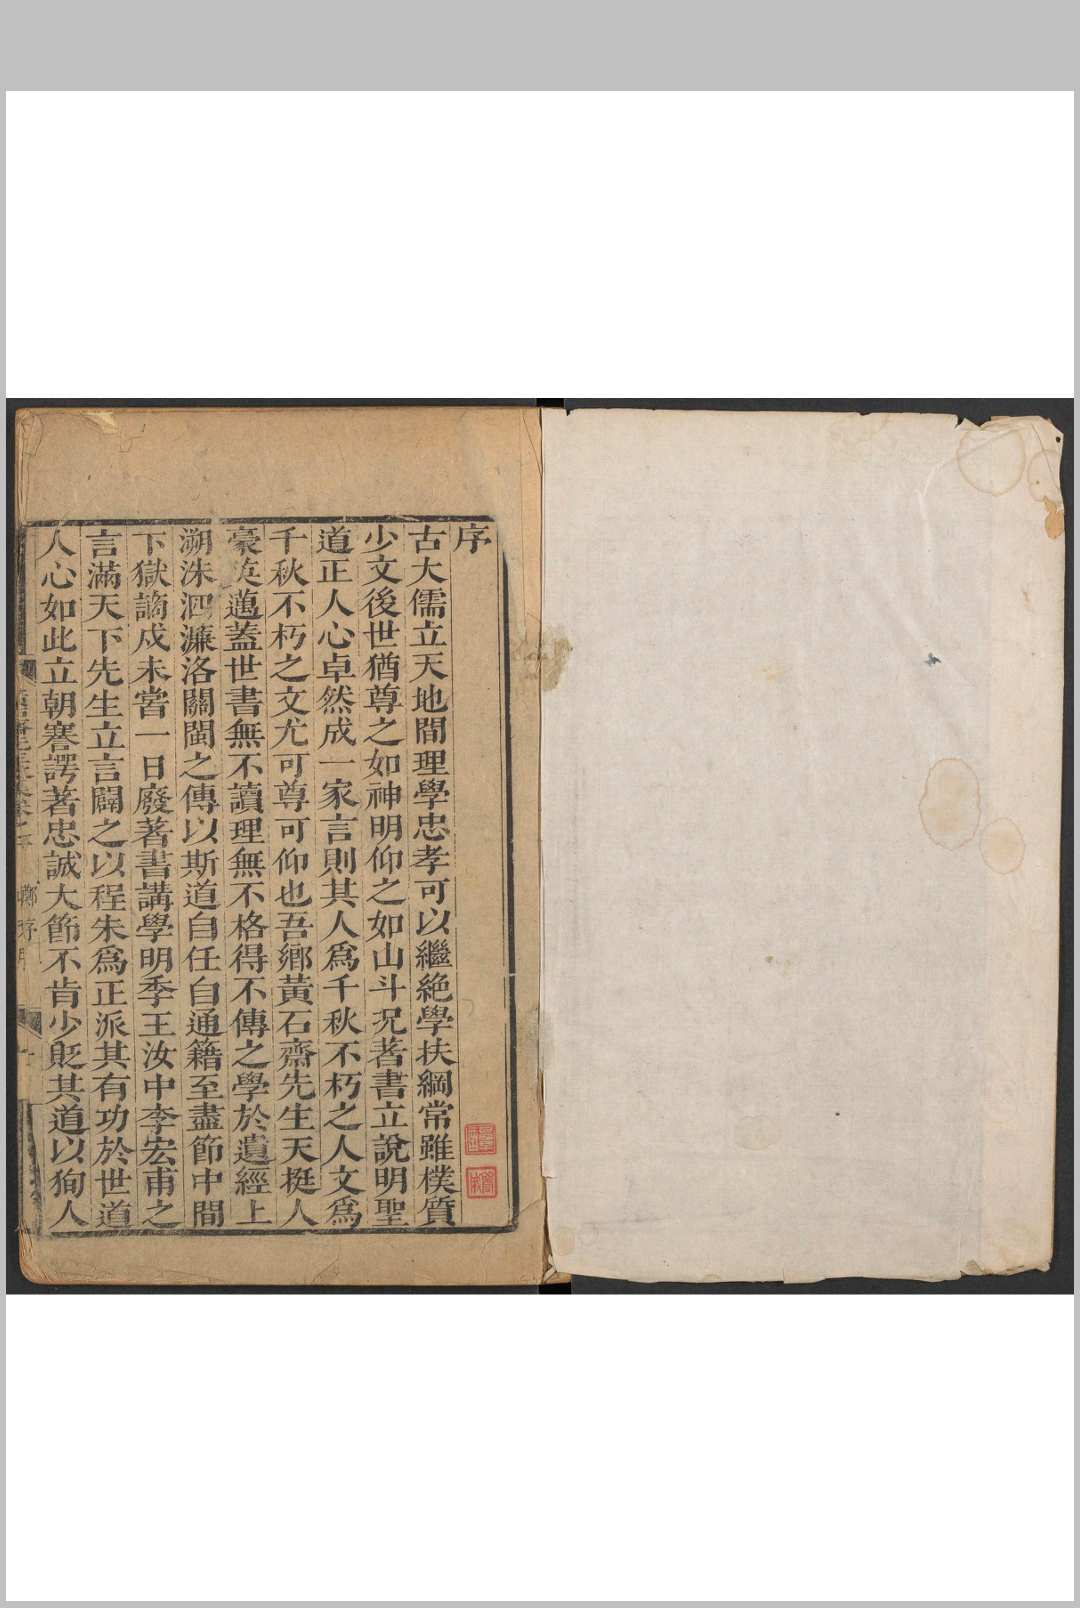 序
古大儒立天地間理學忠孝可以繼絶學扶綱常雖樸質
少文後世猶尊之如神明仰之如山斗況著書立說明聖
道正人心卓然成一家言則其人爲千秋不朽之人文爲
千秋不朽之文尤可尊可仰也吾鄉黃石齋先生天挺人
豪英邁蓋世書無不讀理無不格得不傳之學於遺經上
溯洙泗濂洛關閩之傳以斯道自任自通籍至盡節中間
下獄謫戍未嘗一日廢著書講學明季王汝中李宏甫之
言滿天下先生立言闢之以程朱爲正派其有功於世道
人心如此立朝謇諤著忠誠大節不肯少貶其道以狥人
鄭序